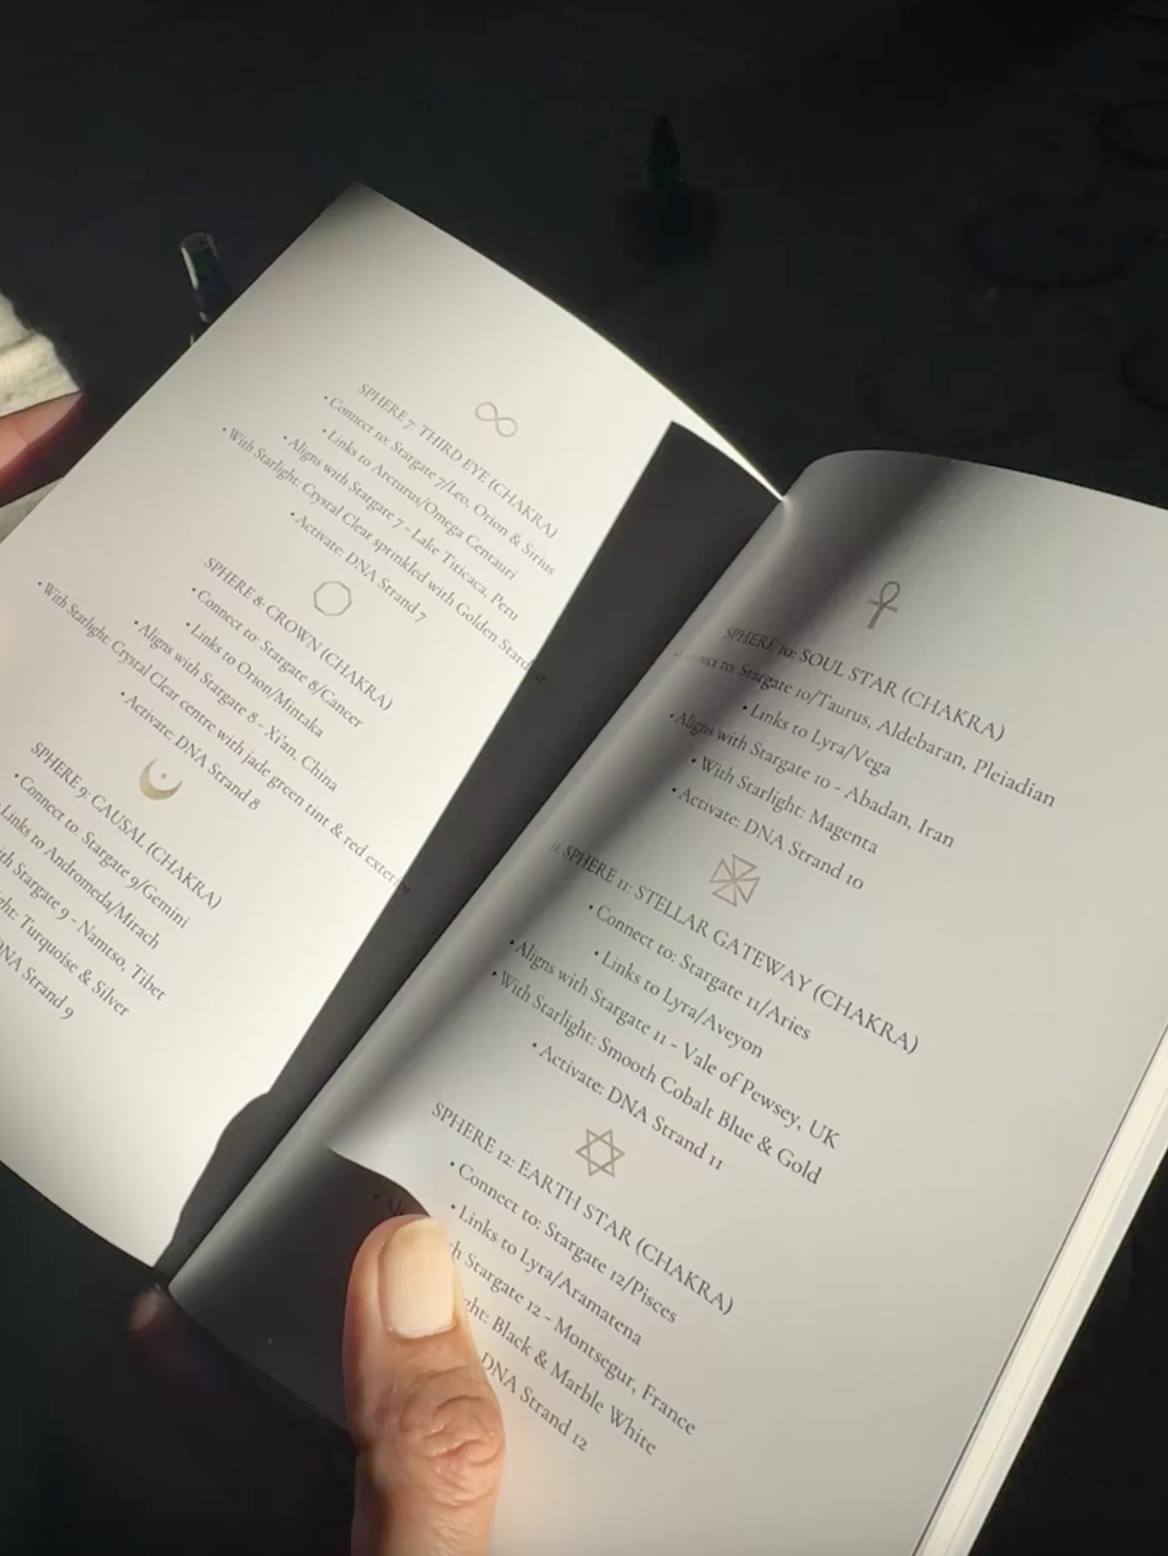 SPHERE 7: THIRD EYE (CHAKRA)
• Connect to: Stargate 7/Leo, Orion & Sirius
• Links to Arcturus/Omega Centauri
• Aligns with Stargate 7 - Lake Titicaca, Peru
• With Starlight: Crystal Clear sprinkled with Golden
• Activate: DNA Strand 7
SPHERE 8: CROWN (CHAKRA)
• Connect to: Stargate 8/Cancer
• Links to Orion/Mintaka
• Aligns with Stargate 8 - Xi'an, China
• With Starlight: Crystal Clear centre with jade green tint & red exterior
• Activate: DNA Strand 8
SPHERE 9: CAUSAL (CHAKRA)
• Connect to: Stargate 9/Gemini
Links to Andromeda/Mirach
Stargate 9 - Namtso, Tibet
Turquoise & Silver
Strand 9
SPHERE 10: SOUL STAR (CHAKRA)
to: Stargate 10/Taurus, Aldebaran, Pleiadian
• Links to Lyra/Vega
• Aligns with Stargate 10 - Abadan, Iran
• With Starlight: Magenta
• Activate: DNA Strand 10
11. SPHERE 11: STELLAR GATEWAY (CHAKRA)
• Connect to: Stargate 11/Aries
• Links to Lyra/Aveyon
• Aligns with Stargate 11 - Vale of Pewsey, UK
• With Starlight: Smooth Cobalt Blue & Gold
• Activate: DNA Strand 11
SPHERE 12: EARTH STAR (CHAKRA)
• Connect to: Stargate 12/Pisces
• Links to Lyra/Aramatena
Stargate 12 - Montsegur, France
Black & Marble White
DNA Strand 12